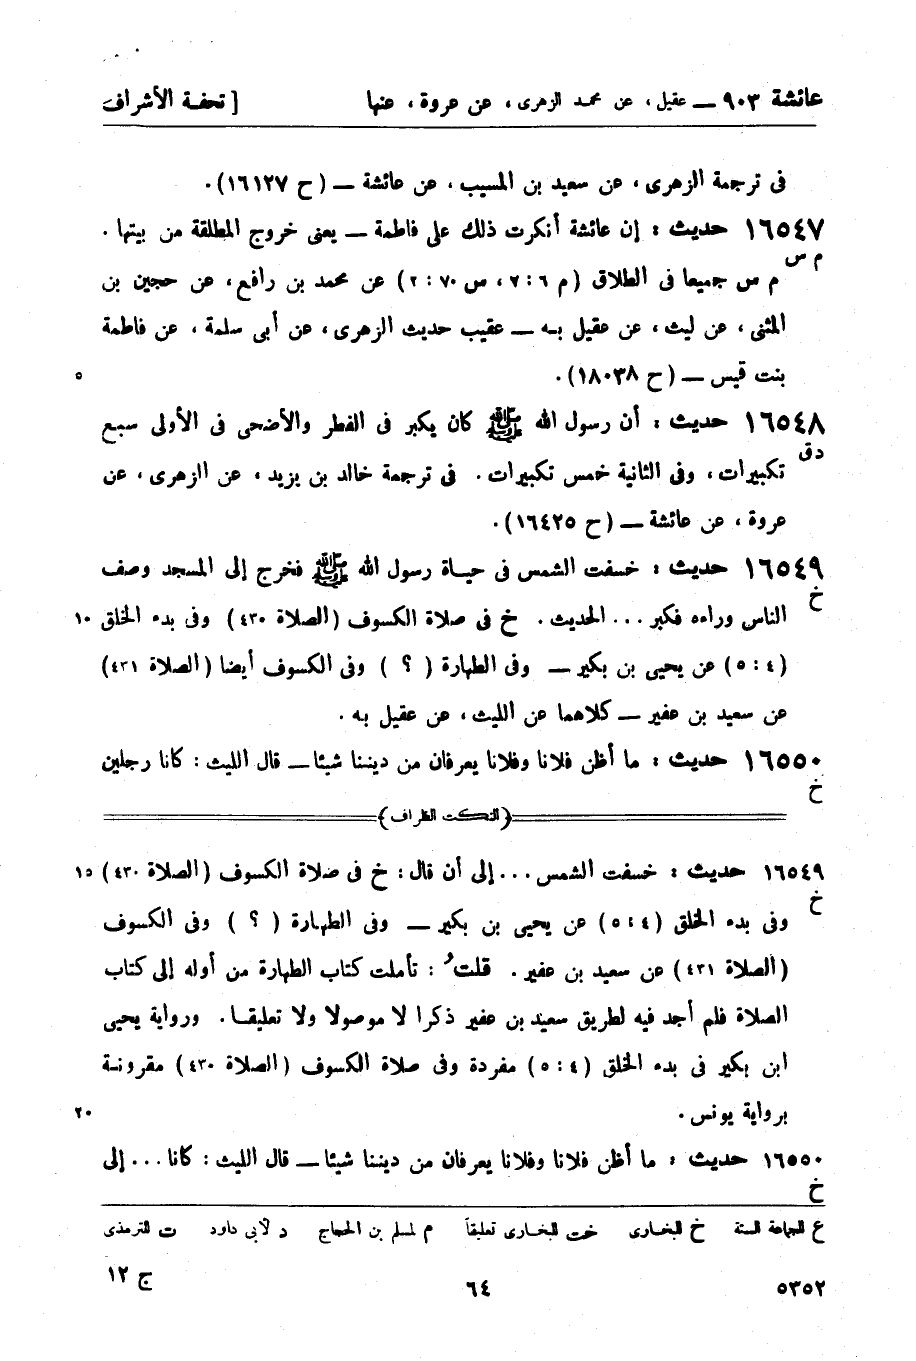 عائشة ٩٠٣ — عقيل، عن محمد الزهرى، عن عروة، عنها [ تحفة الأشراف
فى ترجمة الزهرى، عن سعيد بن المسيب، عن عائشة — (ح ١٦١٢٧).
١٦٥٤٧ حديث : إن عائشة أنكرت ذلك على فاطمة — يعنى خروج المطلقة من بيتها .
م س
م س جميعا فى الطلاق (م ٦ : ٧، س ٧٠ : ٢) عن محمد بن رافع، عن حجين بن
المثنى، عن ليث، عن عقيل بـه — عقيب حديث الزهرى، عن أبى سلمة، عن فاطمة
بنت قيس — (ح ١٨٠٣٨). ٥
١٦٥٤٨ حديث : أن رسول الله ﷺ كان يكبر فى الفطر والأضحى فى الأولى سبع
د ق
تكبيرات، وفى الثانية خمس تكبيرات . فى ترجمة خالد بن يزيد، عن الزهرى، عن
عروة، عن عائشة — (ح ١٦٤٢٥).
١٦٥٤٩ حديث : خسفت الشمس فى حيـاة رسول الله ﷺ فخرج إلى المسجد وصف
خ
الناس وراءه فكبر ... الحديث . خ فى صلاة الكسوف (الصلاة ٤٣٠) وفى بدء الخلق ١٠
(٤ : ٥) عن يحيى بن بكير — وفى الطهارة ( ؟ ) وفى الكسوف أيضا (الصلاة ٤٣١)
عن سعيد بن عفير — كلاهما عن الليث، عن عقيل به .
١٦٥٥٠ حديث : ما أظن فلانا وفلانا يعرفان من ديننا شيئا — قال الليث : كانا رجلين
خ
(النكت الظراف)
١٦٥٤٩ حديث : خسفت الشمس ... إلى أن قال : خ فى صلاة الكسوف (الصلاة ٤٣٠) ١٥
خ
وفى بدء الخلق (٤ : ٥) عن يحيى بن بكير — وفى الطهارة ( ؟ ) وفى الكسوف
(الصلاة ٤٣١) عن سعيد بن عفير . قلتُ : تأملت كتاب الطهارة من أوله إلى كتاب
الصلاة فلم أجد فيه لطريق سعيد بن عفير ذكرا لا موصولا ولا تعليقـا . ورواية يحيى
ابن بكير فى بدء الخلق (٤ : ٥) مفردة وفى صلاة الكسوف (الصلاة ٤٣٠) مقرونـة
برواية يونس . ٢٠
١٦٥٥٠ حديث : ما أظن فلانا وفلانا يعرفان من ديننا شيئا — قال الليث : كانا ... إلى
خ
ع للجماعة الستة خ للبخارى خت للبخارى تعليقاً م لمسلم بن الحجاج د لأبى داود ت للترمذى
٥٣٥٢ ٦٤ ج ١٢